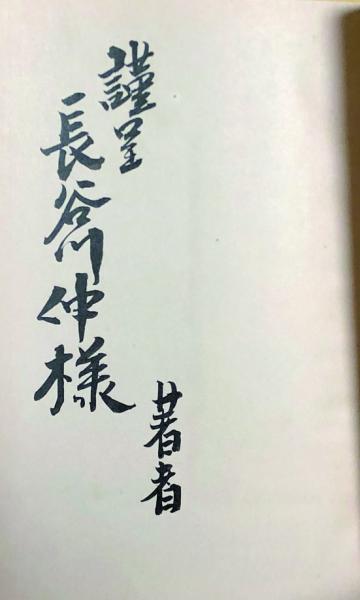 謹呈
長谷川伸様
著者